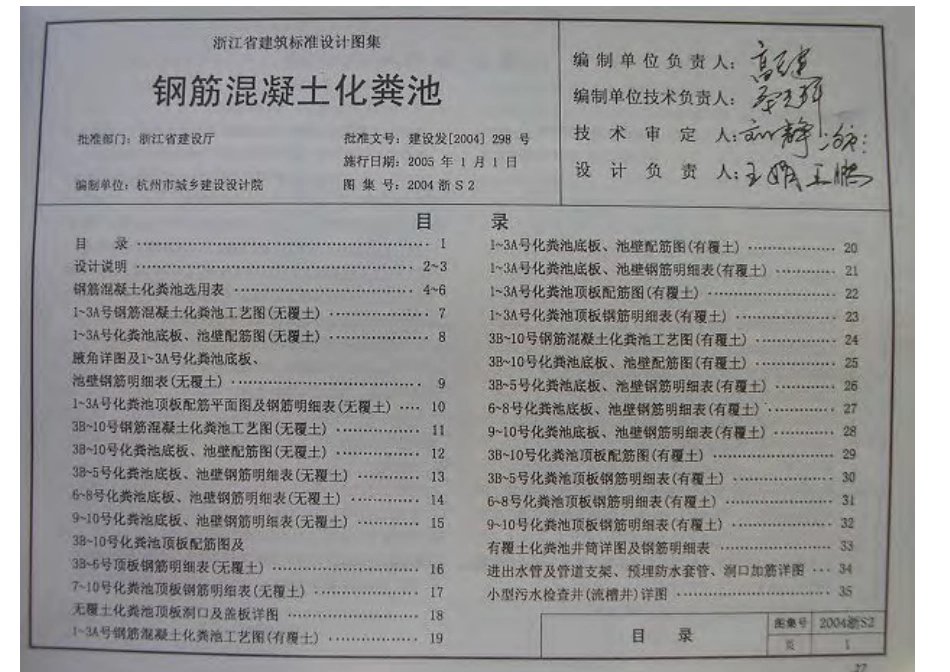 浙江省建筑标准设计图集
钢筋混凝土化粪池
批准部门：浙江省建设厅
批准文号：建设发[2004] 298 号
施行日期：2005 年 1 月 1 日
编制单位：杭州市城乡建设设计院
图 集 号：2004 浙 S 2
编 制 单 位 负 责 人：
编制单位技术负责人：
技 术 审 定 人：
设 计 负 责 人：
目 录
目 录 ……………………………… 1
设计说明 ……………………………… 2~3
钢筋混凝土化粪池选用表 ……………………… 4~6
1~3A号钢筋混凝土化粪池工艺图(无覆土) ………… 7
1~3A号化粪池底板、池壁配筋图(无覆土) ………… 8
腋角详图及1~3A号化粪池底板、
池壁钢筋明细表(无覆土) …………………… 9
1~3A号化粪池顶板配筋平面图及钢筋明细表(无覆土) …… 10
3B~10号钢筋混凝土化粪池工艺图(无覆土) ………… 11
3B~10号化粪池底板、池壁配筋图(无覆土) ………… 12
3B~5号化粪池底板、池壁钢筋明细表(无覆土) ……… 13
6~8号化粪池底板、池壁钢筋明细表(无覆土) ……… 14
9~10号化粪池底板、池壁钢筋明细表(无覆土) ……… 15
3B~10号化粪池顶板配筋图及
3B~6号顶板钢筋明细表(无覆土) ……………… 16
7~10号化粪池顶板钢筋明细表(无覆土) …………… 17
无覆土化粪池顶板洞口及盖板详图 ……………… 18
1~3A号钢筋混凝土化粪池工艺图(有覆土) ………… 19
1~3A号化粪池底板、池壁配筋图(有覆土) ………… 20
1~3A号化粪池底板、池壁钢筋明细表(有覆土) ……… 21
1~3A号化粪池顶板配筋图(有覆土) ……………… 22
1~3A号化粪池顶板钢筋明细表(有覆土) …………… 23
3B~10号钢筋混凝土化粪池工艺图(有覆土) ………… 24
3B~10号化粪池底板、池壁配筋图(有覆土) ………… 25
3B~5号化粪池底板、池壁钢筋明细表(有覆土) ……… 26
6~8号化粪池底板、池壁钢筋明细表(有覆土) ……… 27
9~10号化粪池底板、池壁钢筋明细表(有覆土) ……… 28
3B~10号化粪池顶板配筋图(有覆土) ……………… 29
3B~5号化粪池顶板钢筋明细表(有覆土) …………… 30
6~8号化粪池顶板钢筋明细表(有覆土) …………… 31
9~10号化粪池顶板钢筋明细表(有覆土) …………… 32
有覆土化粪池井筒详图及钢筋明细表 ……………… 33
进出水管及管道支架、预埋防水套管、洞口加筋详图 … 34
小型污水检查井(流槽井)详图 ………………… 35
目 录
图集号 2004浙S2
页 1
27